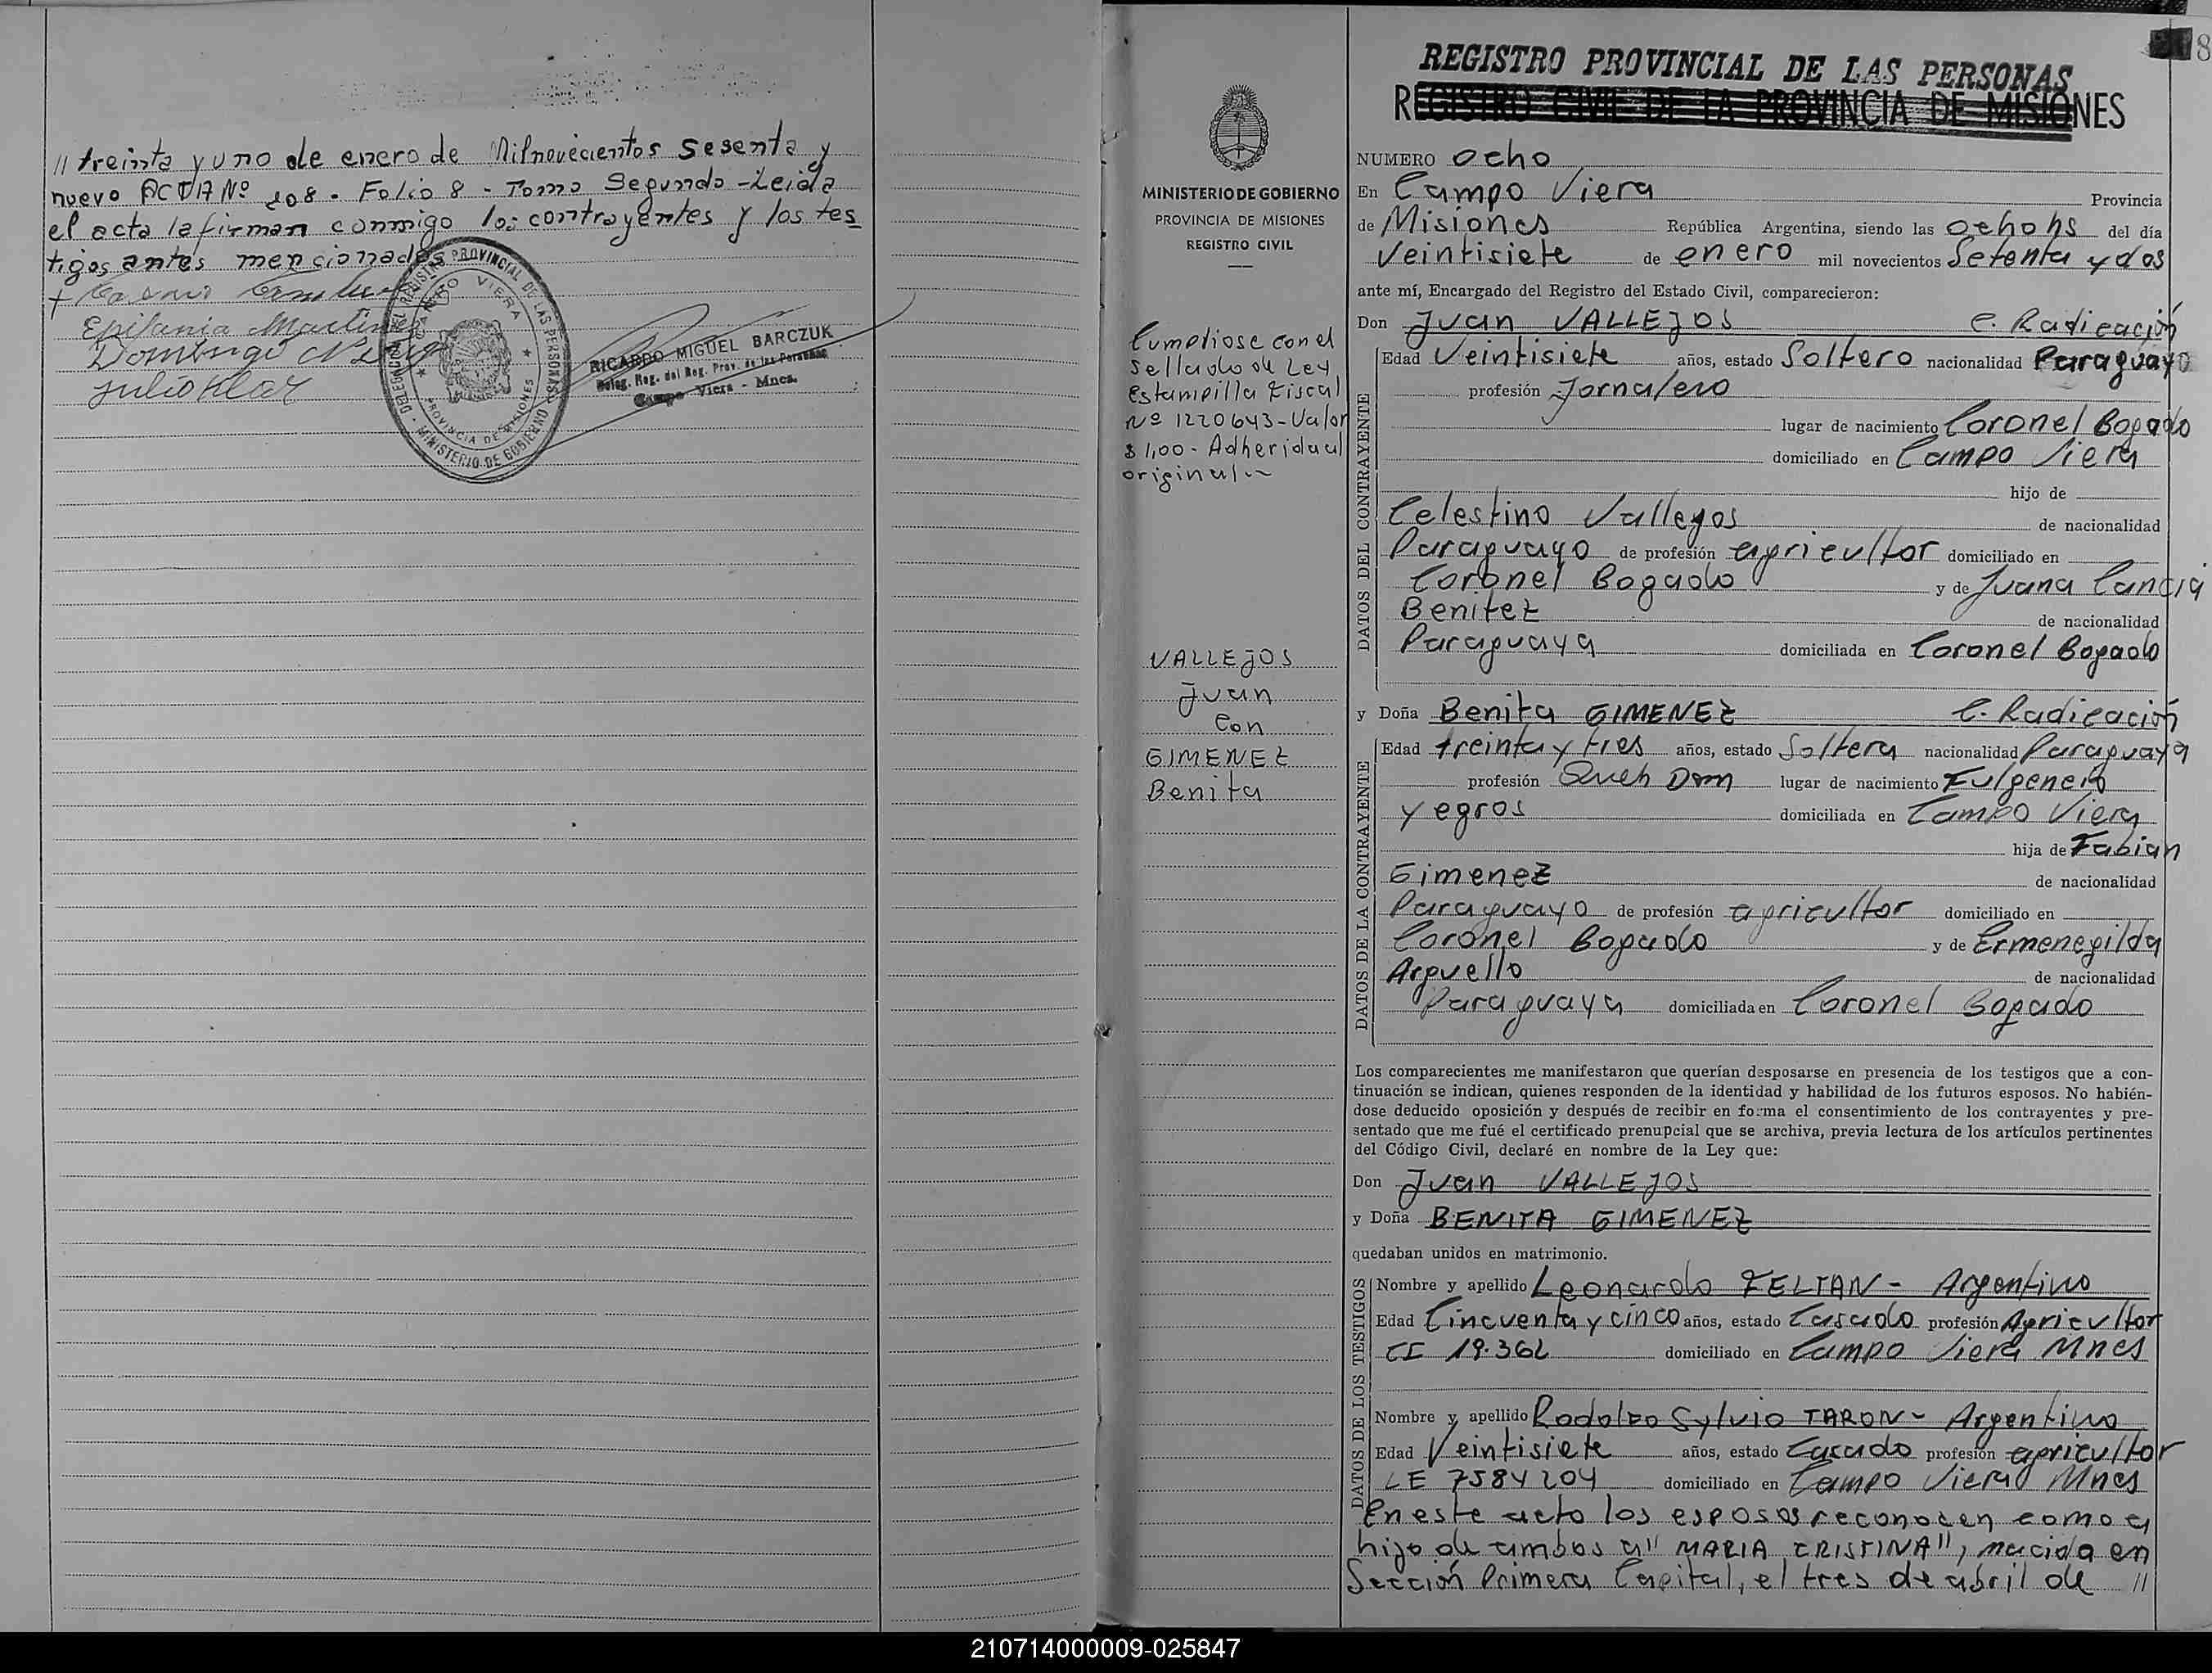 // treinta y uno de enero de Milnovecientos sesenta y
nuevo ACTA Nº 208 - Folio 8 - Tomo Segundo - Leida
el acta la firman conmigo los contrayentes y los tes
tigos antes mencionados
Epifania Martinez
Domingo
Julio Klar
DELEGACION DEL REGISTRO PROVINCIAL DE LAS PERSONAS
CAMPO VIERA
PROVINCIA DE MISIONES
MINISTERIO DE GOBIERNO
RICARDO MIGUEL BARCZUK
Deleg. Reg. del Reg. Prov. de las Personas
Campo Viera - Mnes.
8
REGISTRO PROVINCIAL DE LAS PERSONAS
REGISTRO CIVIL DE LA PROVINCIA DE MISIONES
MINISTERIO DE GOBIERNO
PROVINCIA DE MISIONES
REGISTRO CIVIL
Cumpliose con el
sellado de Ley
Estampilla Fiscal
Nº 1220643 - Valor
$ 1,00 - Adherida al
original
VALLEJOS
Juan
Con
GIMENEZ
Benita
NUMERO ocho
En Campo Viera Provincia
de Misiones República Argentina, siendo las ocho hs del día
Veintisiete de enero mil novecientos Setenta y dos
ante mí, Encargado del Registro del Estado Civil, comparecieron:
Don Juan VALLEJOS C. Radicación
DATOS DEL CONTRAYENTE
Edad Veintisiete años, estado Soltero nacionalidad Paraguayo
profesión Jornalero
lugar de nacimiento Coronel Bogado
domiciliado en Campo Viera
hijo de
Celestino Vallejos de nacionalidad
Paraguayo de profesión agricultor domiciliado en
Coronel Bogado y de Juana Cancia
Benitez de nacionalidad
Paraguaya domiciliada en Coronel Bogado
y Doña Benita GIMENEZ C. Radicación
DATOS DE LA CONTRAYENTE
Edad treinta y tres años, estado Soltera nacionalidad Paraguaya
profesión Queh Dom lugar de nacimiento Fulgencio
Yegros domiciliada en Campo Viera
hija de Fabian
Gimenez de nacionalidad
Paraguayo de profesión agricultor domiciliado en
Coronel Bogado y de Ermenegilda
Arguello de nacionalidad
Paraguaya domiciliada en Coronel Bogado
Los comparecientes me manifestaron que querían desposarse en presencia de los testigos que a con-
tinuación se indican, quienes responden de la identidad y habilidad de los futuros esposos. No habién-
dose deducido oposición y después de recibir en forma el consentimiento de los contrayentes y pre-
sentado que me fué el certificado prenupcial que se archiva, previa lectura de los artículos pertinentes
del Código Civil, declaré en nombre de la Ley que:
Don Juan VALLEJOS
y Doña BENITA GIMENEZ
quedaban unidos en matrimonio.
DATOS DE LOS TESTIGOS
Nombre y apellido Leonardo ZELIAN - Argentino
Edad Cincuenta y cinco años, estado Casado profesión Agricultor
CI 19.362 domiciliado en Campo Viera Mnes
Nombre y apellido Rodolfo Sylvio TARON - Argentino
Edad Veintisiete años, estado Casado profesión agricultor
LE 7584204 domiciliado en Campo Viera Mnes
En este acto los esposos reconocen como a
hijo de ambos a "MARIA CRISTINA", nacida en
Sección Primera Capital, el tres de abril de //
210714000009-025847